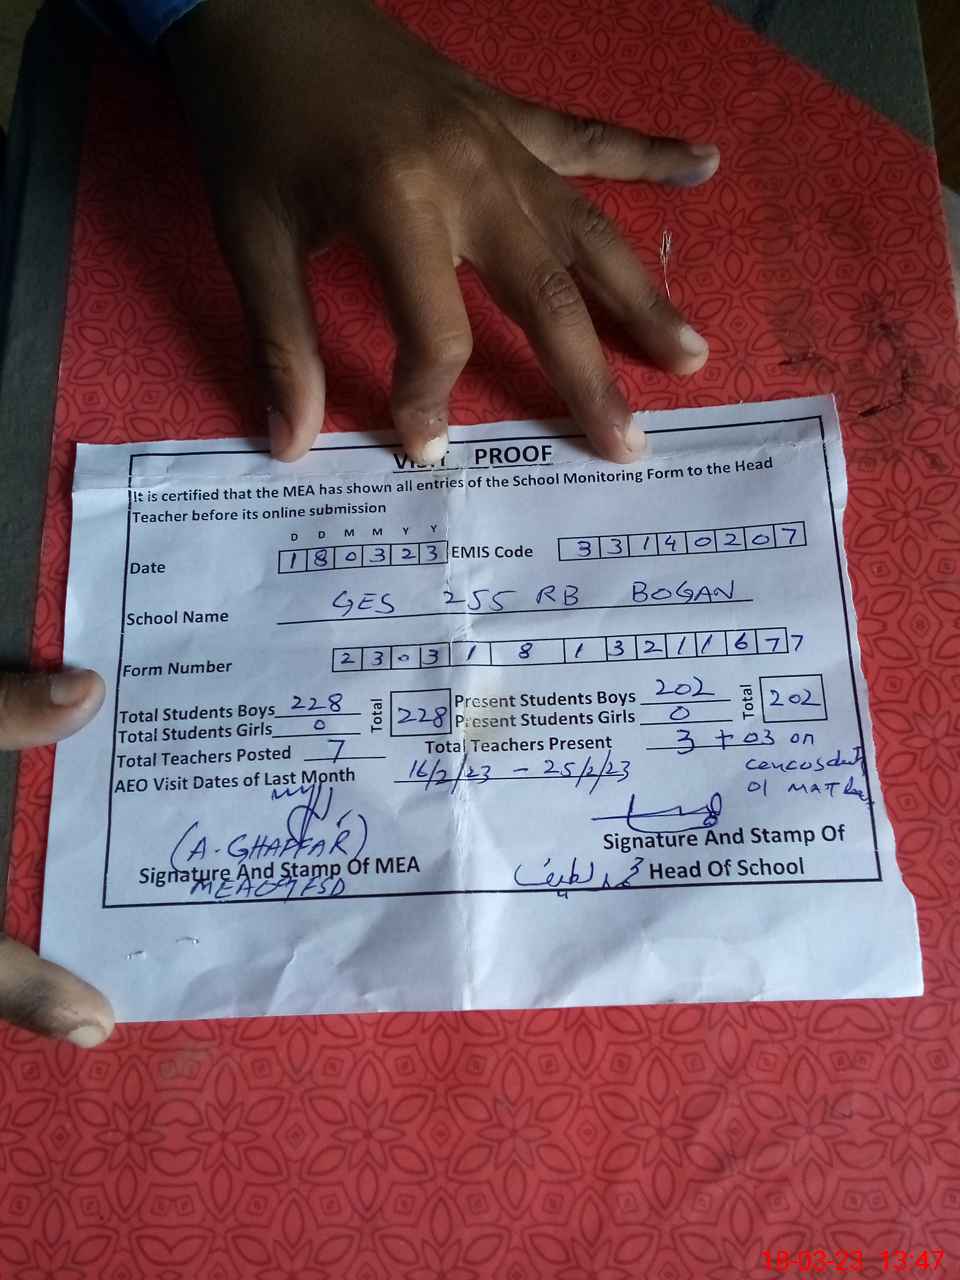 VISIT PROOF
It is certified that the MEA has shown all entries of the School Monitoring Form to the Head
Teacher before its online submission
D D M M Y Y
Date 180323 EMIS Code 33140207
School Name GES 255 RB BOGAN
Form Number 2303181321167 7
Total Students Boys 228 Total 228 Present Students Boys 202 Total 202
Total Students Girls 0 Present Students Girls 0
Total Teachers Posted 7 Total Teachers Present 3 + 03 on
AEO Visit Dates of Last Month 16/2/23 - 25/2/23
01
(A. GHAFFAR)
Signature And Stamp Of MEA
Signature And Stamp Of
Head Of School
18-03-23 13:47